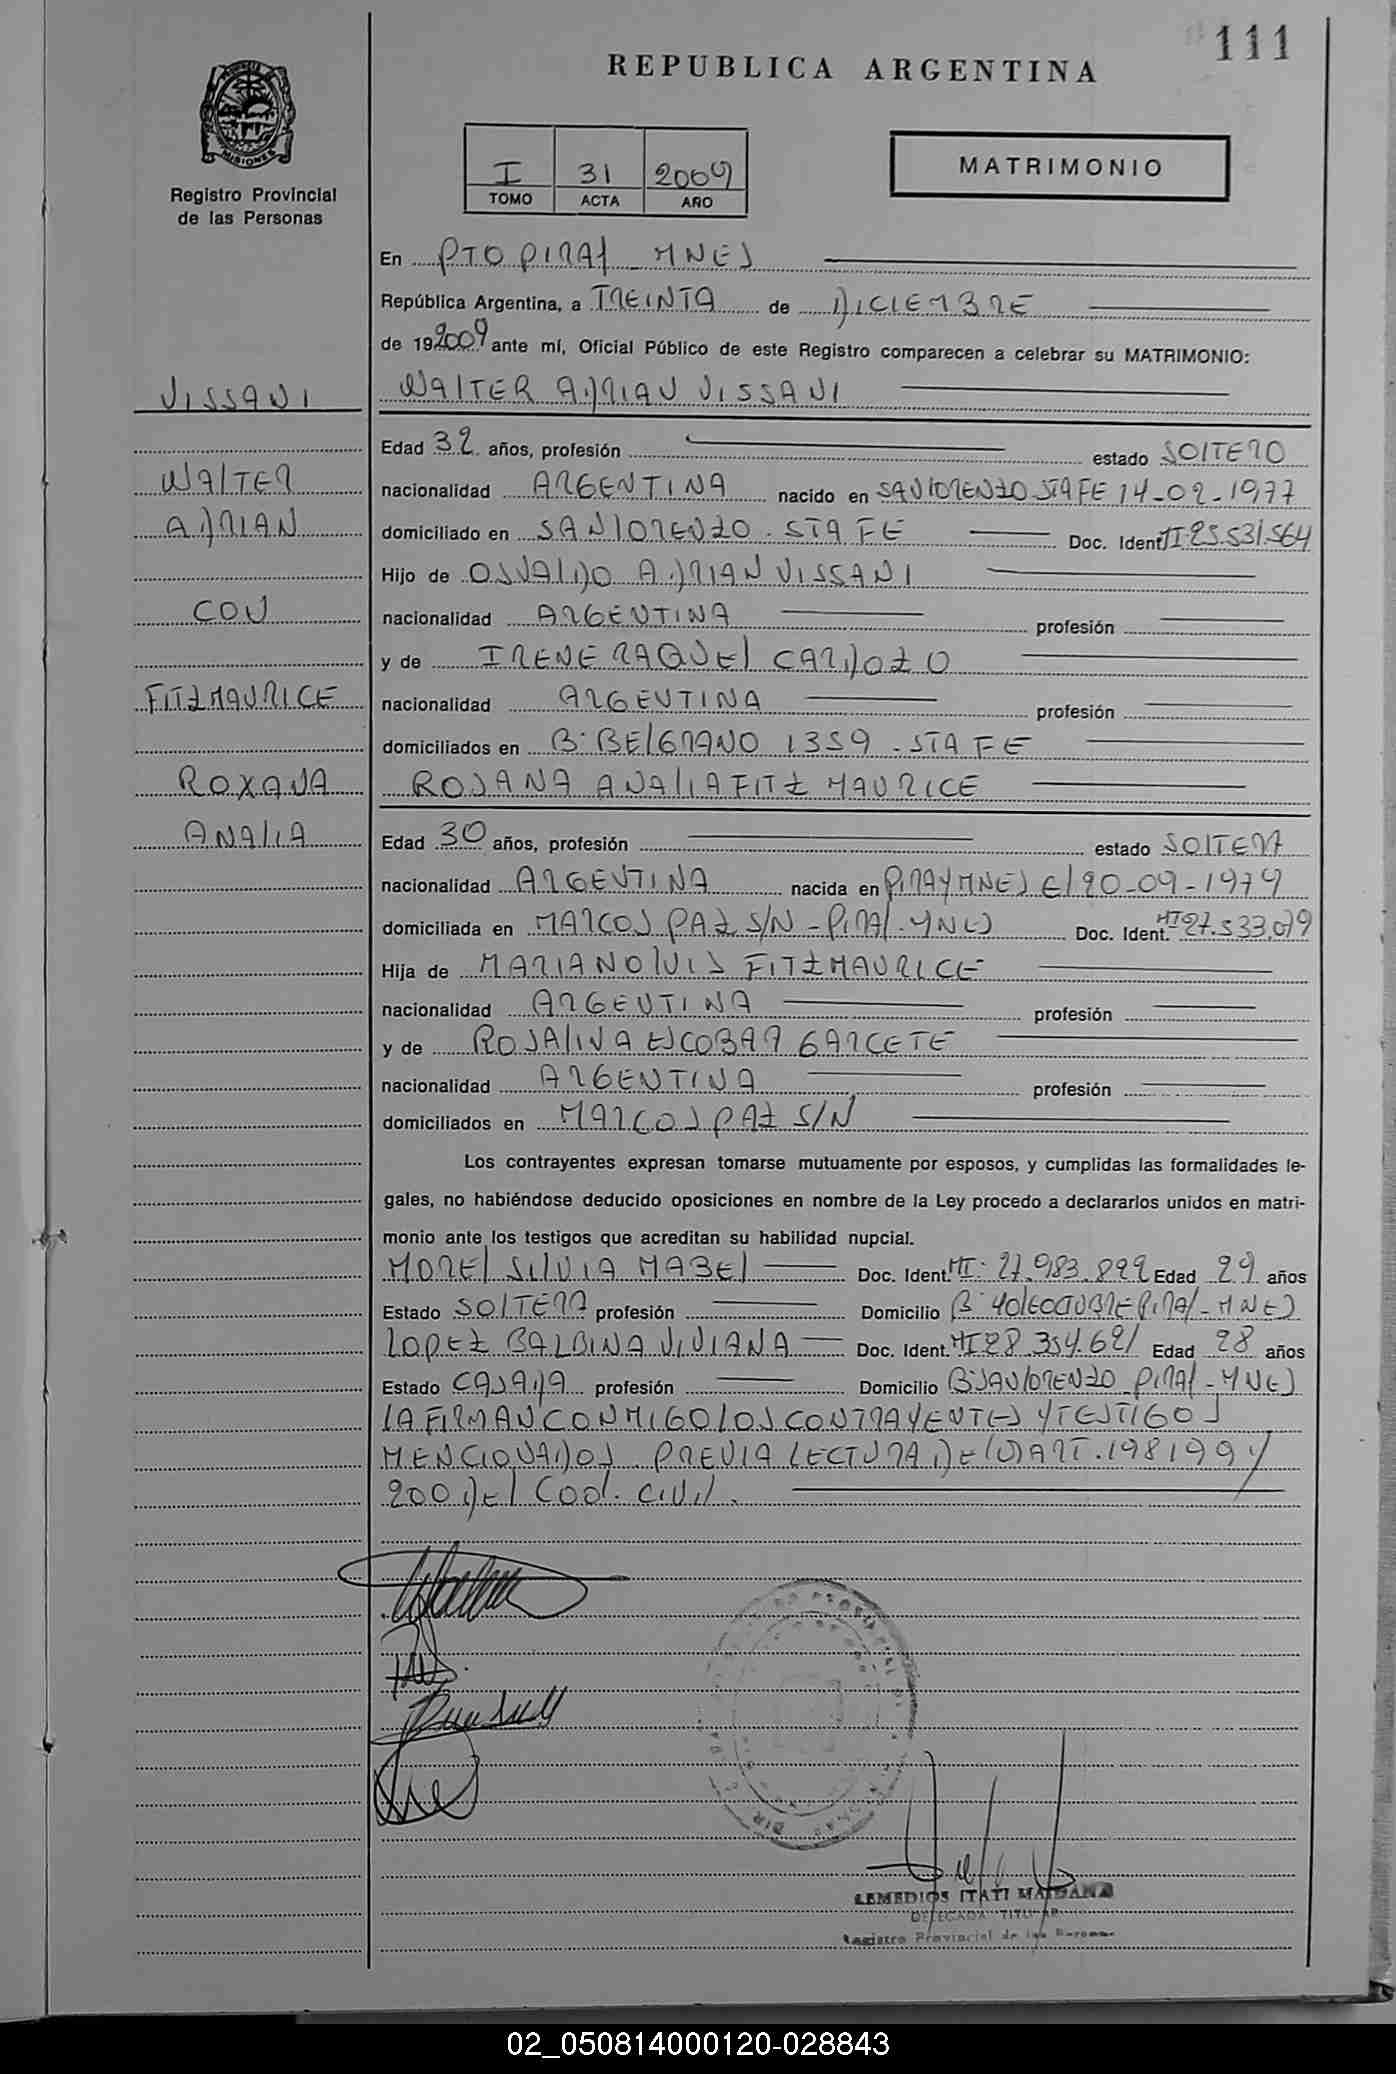 111
REPUBLICA ARGENTINA
PROVINCIA DE
MISIONES
Registro Provincial
de las Personas
I 31 2009
TOMO ACTA AÑO
MATRIMONIO
En PTO PIRAY MNES
República Argentina, a TREINTA de DICIEMBRE
de 192009 ante mí, Oficial Público de este Registro comparecen a celebrar su MATRIMONIO:
VISSANI
WALTER ADRIAN VISSANI
Edad 32 años, profesión estado SOLTERO
WALTER
nacionalidad ARGENTINA nacido en SAN LORENZO STA FE 14-02-1977
ADRIAN
domiciliado en SAN LORENZO. STA FE Doc. Ident. MI 25.531.564
Hijo de OSVALDO ADRIAN VISSANI
CON
nacionalidad ARGENTINA profesión
y de IRENE RAQUEL CARDOZO
FITZMAURICE
nacionalidad ARGENTINA profesión
domiciliados en B: BELGRANO 1359 - STA FE
ROXANA
ROSANA ANALIA FITZ MAURICE
ANALIA
Edad 30 años, profesión estado SOLTERA
nacionalidad ARGENTINA nacida en PIRAY MNES EL 20-09-1979
domiciliada en MARCOS PAZ S/N - PIRAY. MNES Doc. Ident. MI 27.533.079
Hija de MARIANO LUIS FITZMAURICE
nacionalidad ARGENTINA profesión
y de ROSALINA ESCOBAR GARCETE
nacionalidad ARGENTINA profesión
domiciliados en MARCOS PAZ S/N
Los contrayentes expresan tomarse mutuamente por esposos, y cumplidas las formalidades le-
gales, no habiéndose deducido oposiciones en nombre de la Ley procedo a declararlos unidos en matri-
monio ante los testigos que acreditan su habilidad nupcial.
MOREL SILVIA MABEL Doc. Ident. MI: 27.983.892 Edad 29 años
Estado SOLTERA profesión Domicilio B: 40 LEOCTUBRE PIRAY - MNES
LOPEZ BALBINA VIVIANA Doc. Ident. MI 28.354.621 Edad 28 años
Estado CASADA profesión Domicilio B: SAN LORENZO PIRAY - MNES
LA FIRMAN CONMIGO LOS CONTRAYENTES Y TESTIGOS
MENCIONADOS. PREVIA LECTURA DE LOS ART. 198 199 Y
200 DEL Cod. Civil.
LEMEDIOS ITATI MAIDANA
DELEGADA TITULAR
Registro Provincial de las Personas
02_050814000120-028843